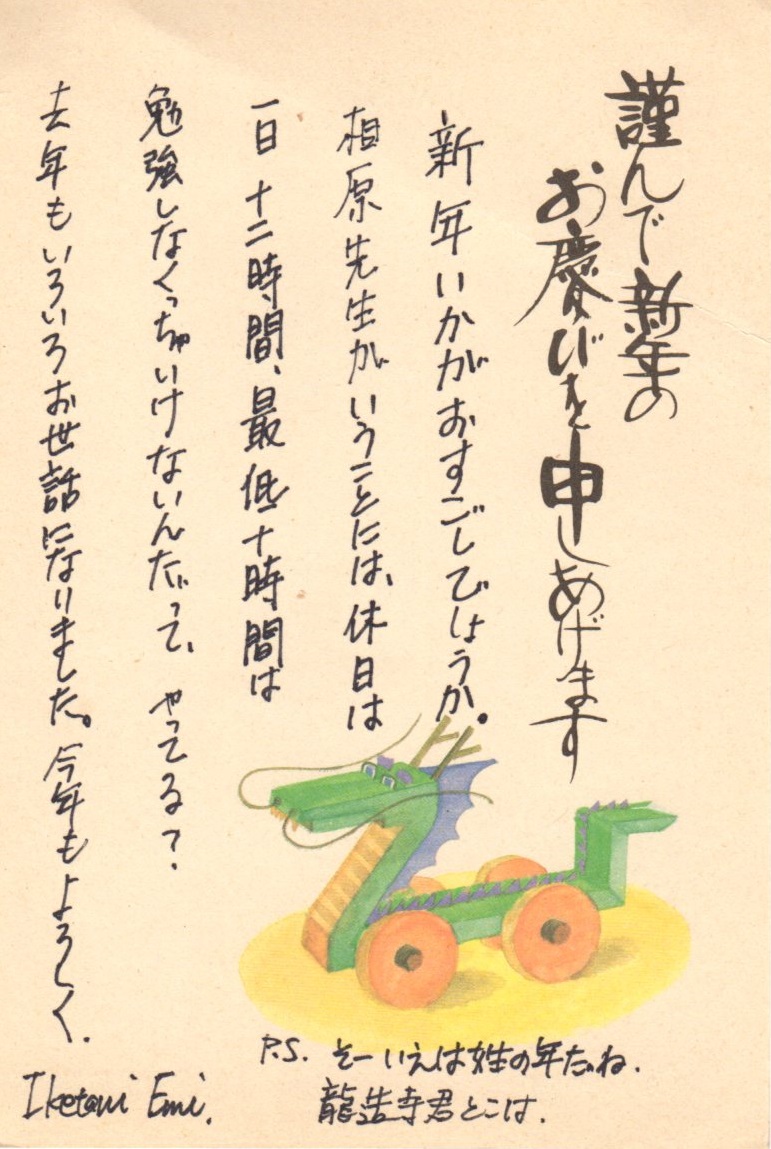 謹んで新年の
お慶びを申しあげます
新年いかがおすごしでしょうか。
相原先生がいうことには、休日は
一日十二時間、最低十時間は
勉強しなくっちゃいけないんだって、やってる？
去年もいろいろお世話になりました。今年もよろしく．
P.S. そーいえば姓の年だね．
龍造寺君とこは．
Iketani Emi.